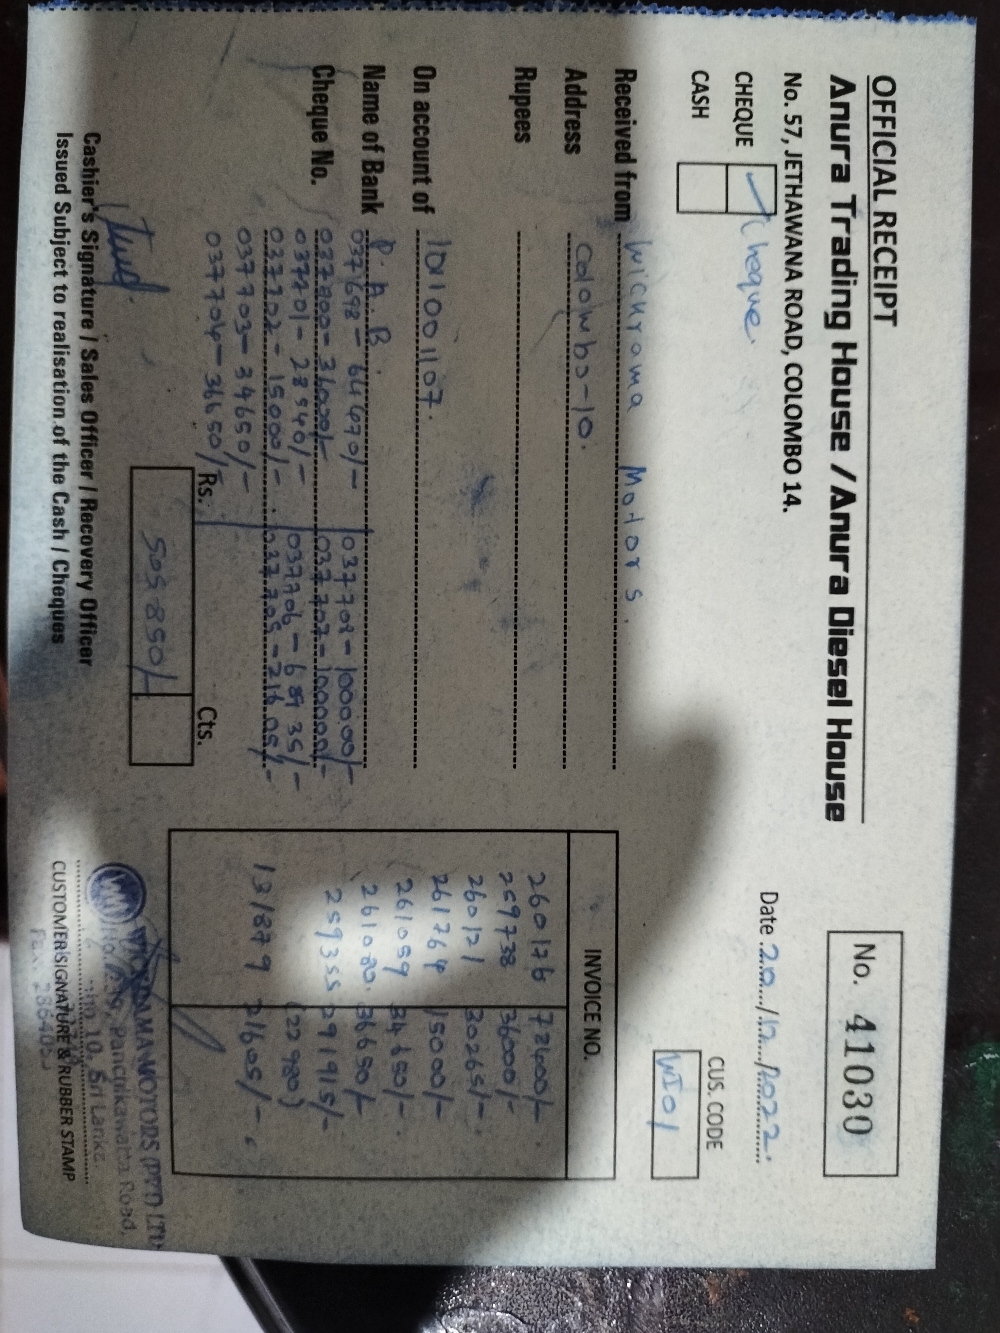 OFFICIAL RECEIPT
Anura Trading House / Anura Diesel House
No. 57, JETHAWANA ROAD, COLOMBO 14.
No. 41030
CHEQUE Cheque
CASH
Date 20/12/2022.
CUS. CODE
WI01
Received from Wickrama Motors.
Address Colombo-10.
Rupees
On account of 101001107.
Name of Bank P.A.B.
Cheque No.
037698 - 64670/-
037700 - 36000/-
037701 - 28940/-
037702 - 15000/-
037703 - 34650/-
037704 - 36650/-
037708 - 100000/-
037707 - 100000/-
037706 - 68935/-
037705 - 21605/-
Rs. Cts.
505850/-
INVOICE NO.
260176 72400/-
259738 36000/-
260121 30265/-
261764 15000/-
261059 34650/-
261080. 36650/-
259355 291915/-
(22980)
131879 21605/-
Cashier's Signature / Sales Officer / Recovery Officer
Issued Subject to realisation of the Cash / Cheques
MOTORS (PVT) LTD
Panchikawatta Road,
10, Sri Lanka
CUSTOMER SIGNATURE & RUBBER STAMP